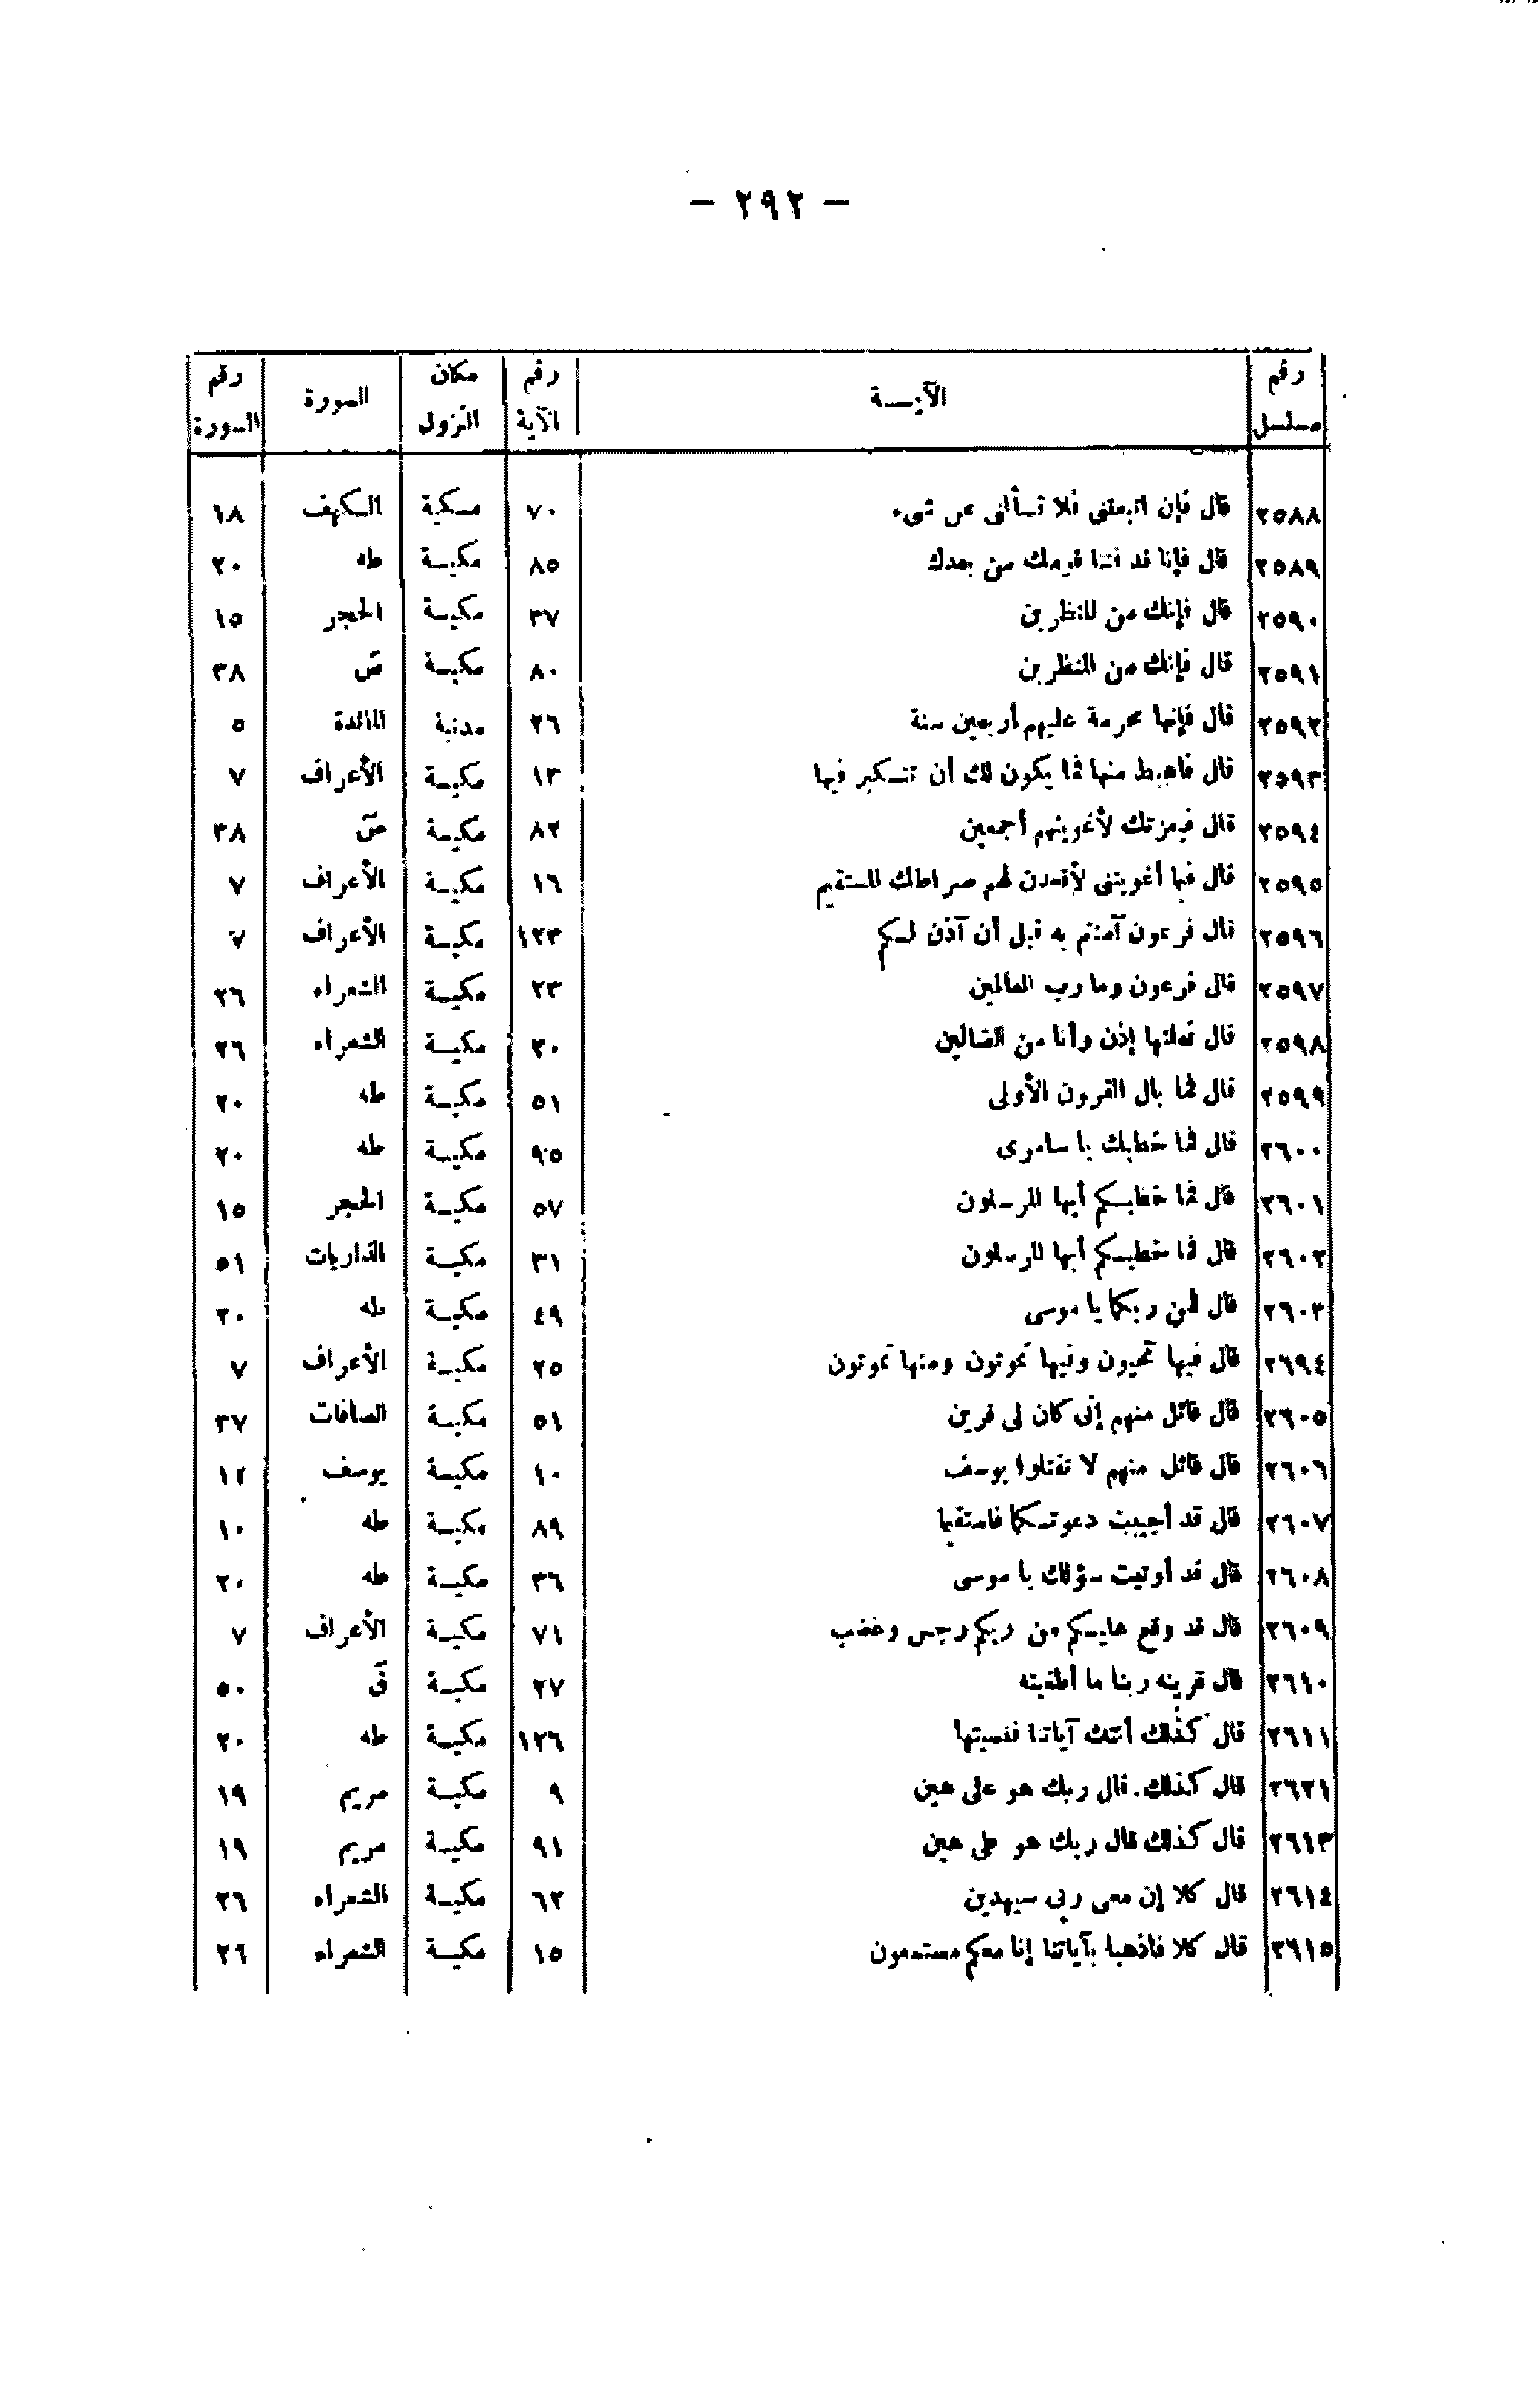 — ٢٩٢ —
رقم مسلسل الآيـــة رقم الآية مكان النزول السورة رقم السورة
٢٥٨٨ قال فإن اتبعتنى فلا تسألنى عن شىء ٧٠ مسكية السكهف ١٨
٢٥٨٩ قال فإنا قد فتنا قومك من بعدك ٨٥ مكيــة طه ٢٠
٢٥٩٠ قال فإنك من المنظرين ٣٧ مكيــة الحجر ١٥
٢٥٩١ قال فإنك من المنظرين ٨٠ مكيــة صّ ٣٨
٢٥٩٢ قال فإنها محرمة عليهم أربعين سنة ٢٦ مدنية المائدة ٥
٢٥٩٣ قال فاهبط منها فما يكون لك أن تتسكبر فيها ١٣ مكيــة الأعراف ٧
٢٥٩٤ قال فبعزتك لأغوينهم أجمعين ٨٢ مكيــة صّ ٣٨
٢٥٩٥ قال فبما أغويتنى لأقعدن لهم صراطك المستقيم ١٦ مكيــة الأعراف ٧
٢٥٩٦ قال فرعون آمنتم به قبل أن آذن لسكم ١٢٣ مكيــة الأعراف ٧
٢٥٩٧ قال فرعون وما رب العالمين ٢٣ مكيــة الشعراء ٢٦
٢٥٩٨ قال فعلتها إذن وأنا من الضالين ٢٠ مكيــة الشعراء ٢٦
٢٥٩٩ قال فما بال القرون الأولى ٥١ مكيــة طه ٢٠
٢٦٠٠ قال فما خطبك يا سامرى ٩٥ مكيــة طه ٢٠
٢٦٠١ قال فما خطبسكم أيها المرسلون ٥٧ مكيــة الحجر ١٥
٢٦٠٢ قال فما خطبسكم أيها المرسلون ٣١ مكيــة الذاريات ٥١
٢٦٠٣ قال فمن ربكما يا موسى ٤٩ مكيــة طه ٢٠
٢٦٩٤ قال فيها تحيون وفيها تموتون ومنها تموتون ٢٥ مكيــة الأعراف ٧
٢٦٠٥ قال قائل منهم إنى كان لى قرين ٥١ مكيــة الصافات ٣٧
٢٦٠٦ قال قائل منهم لا تقتلوا يوسف ١٠ مكيــة يوسف ١٢
٢٦٠٧ قال قد أجيبت دعوتسكما فاستقيما ٨٩ مكيــة طه ١٠
٢٦٠٨ قال قد أوتيت سؤلك يا موسى ٣٦ مكيــة طه ٢٠
٢٦٠٩ قال قد وقع عليسكم من ربكم رجس وغضب ٧١ مكيــة الأعراف ٧
٢٦١٠ قال قرينه ربنا ما أطغيته ٢٧ مكيــة قّ ٥٠
٢٦١١ قال كذلك أتتك آياتنا فنسيتها ١٢٦ مكيــة طه ٢٠
٢٦٢١ قال كذلك. قال ربك هو على هين ٩ مكيــة مريم ١٩
٢٦١٣ قال كذلك قال ربك هو على هين ٩١ مكيــة مريم ١٩
٢٦١٤ قال كلا إن معى ربى سيهدين ٦٢ مكيــة الشعراء ٢٦
٢٦١٥ قال كلا فاذهبا بآياتنا إنا معكم مستمعون ١٥ مكيــة الشعراء ٢٦